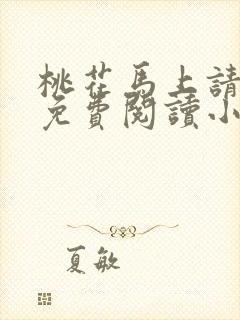 桃花馬上請
免費閱讀小
夏敏